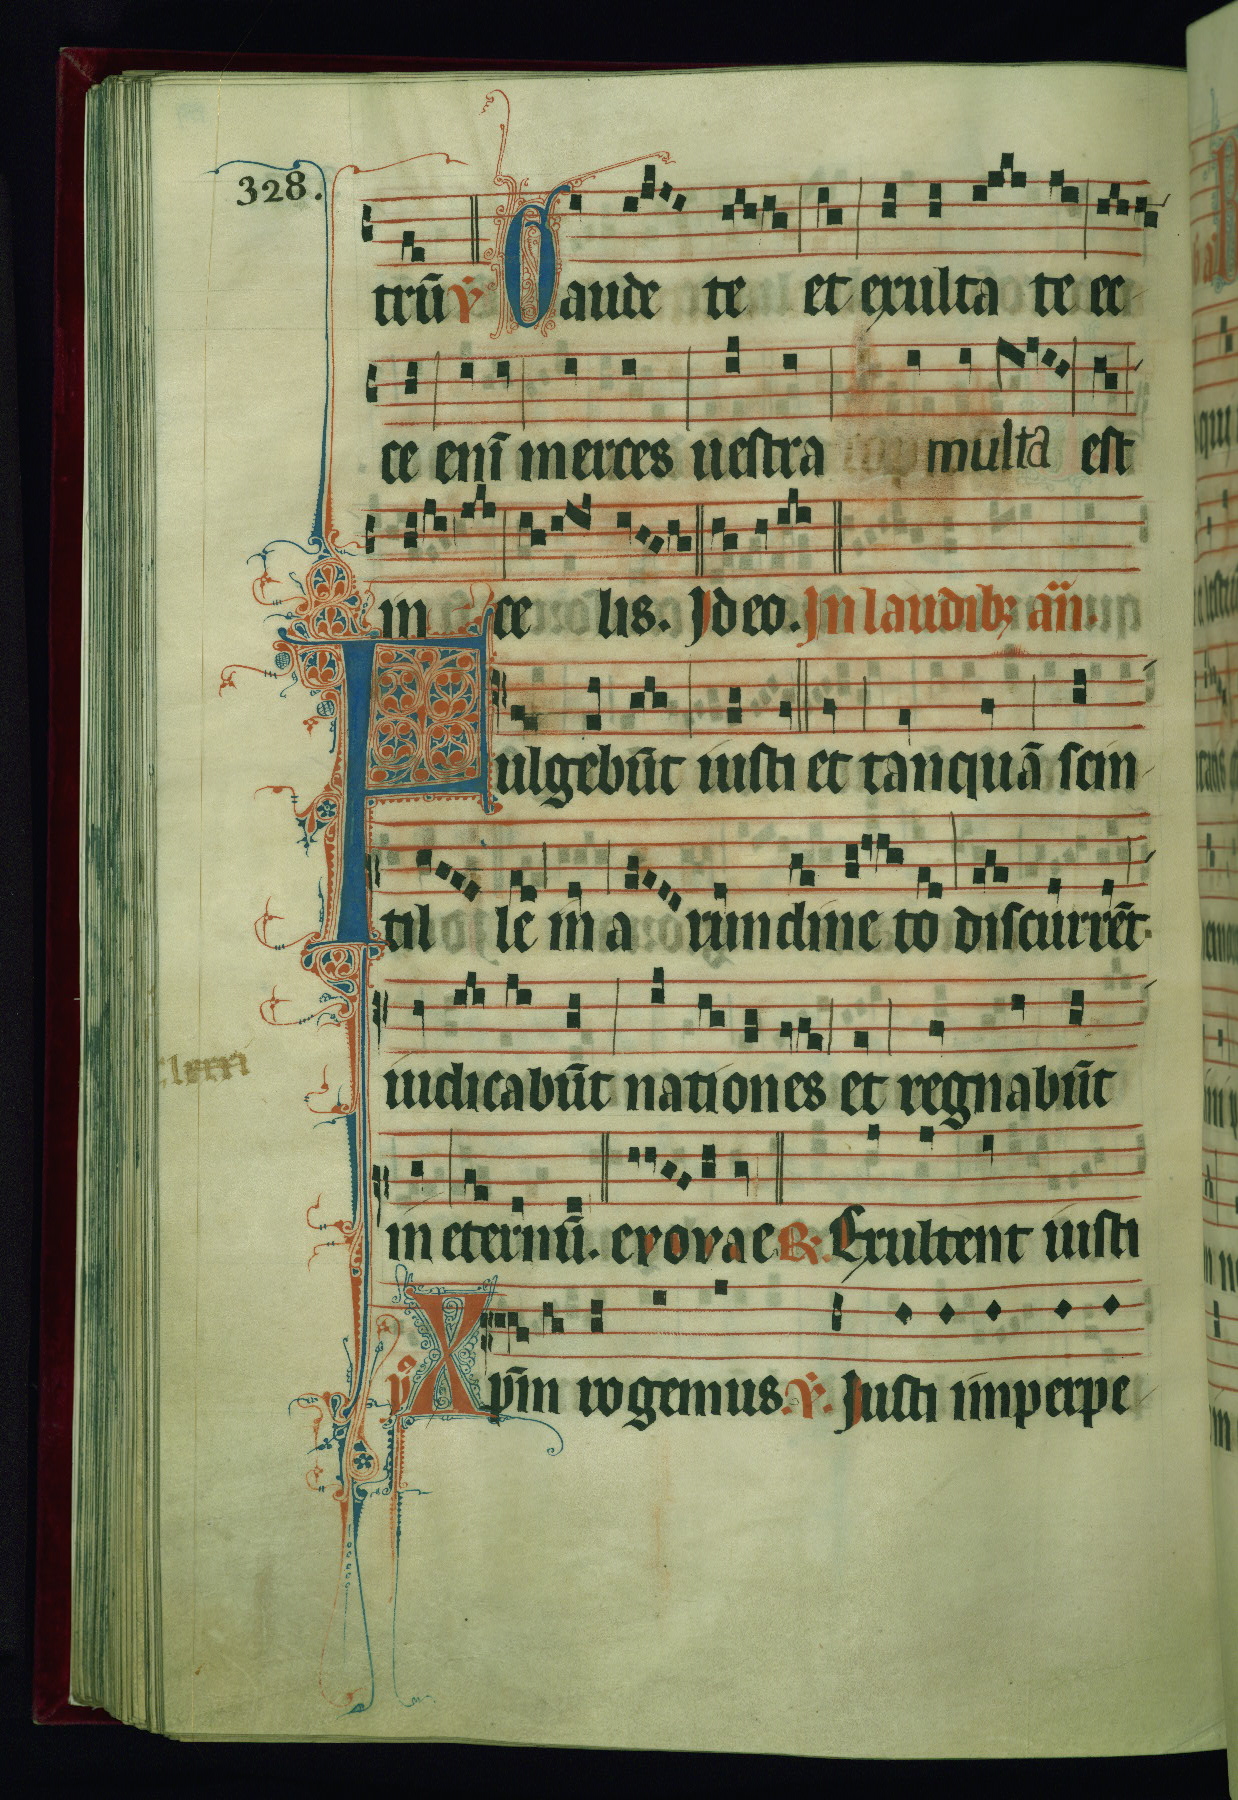 328.
trū ℣ Gaude te et exulta te ec
ce eni̅ merces uestra multa est
in ce lis. Ideo. In laudibꝫ an̅.
Fulgebūt iusti et tanquā scin
til le in a rundine to discurrēt.
iudicabūt nationes et regnabūt
in eternū. evovae ℟. Exultent iusti
Xp̄m rogemus. ℣. Iusti imperpe